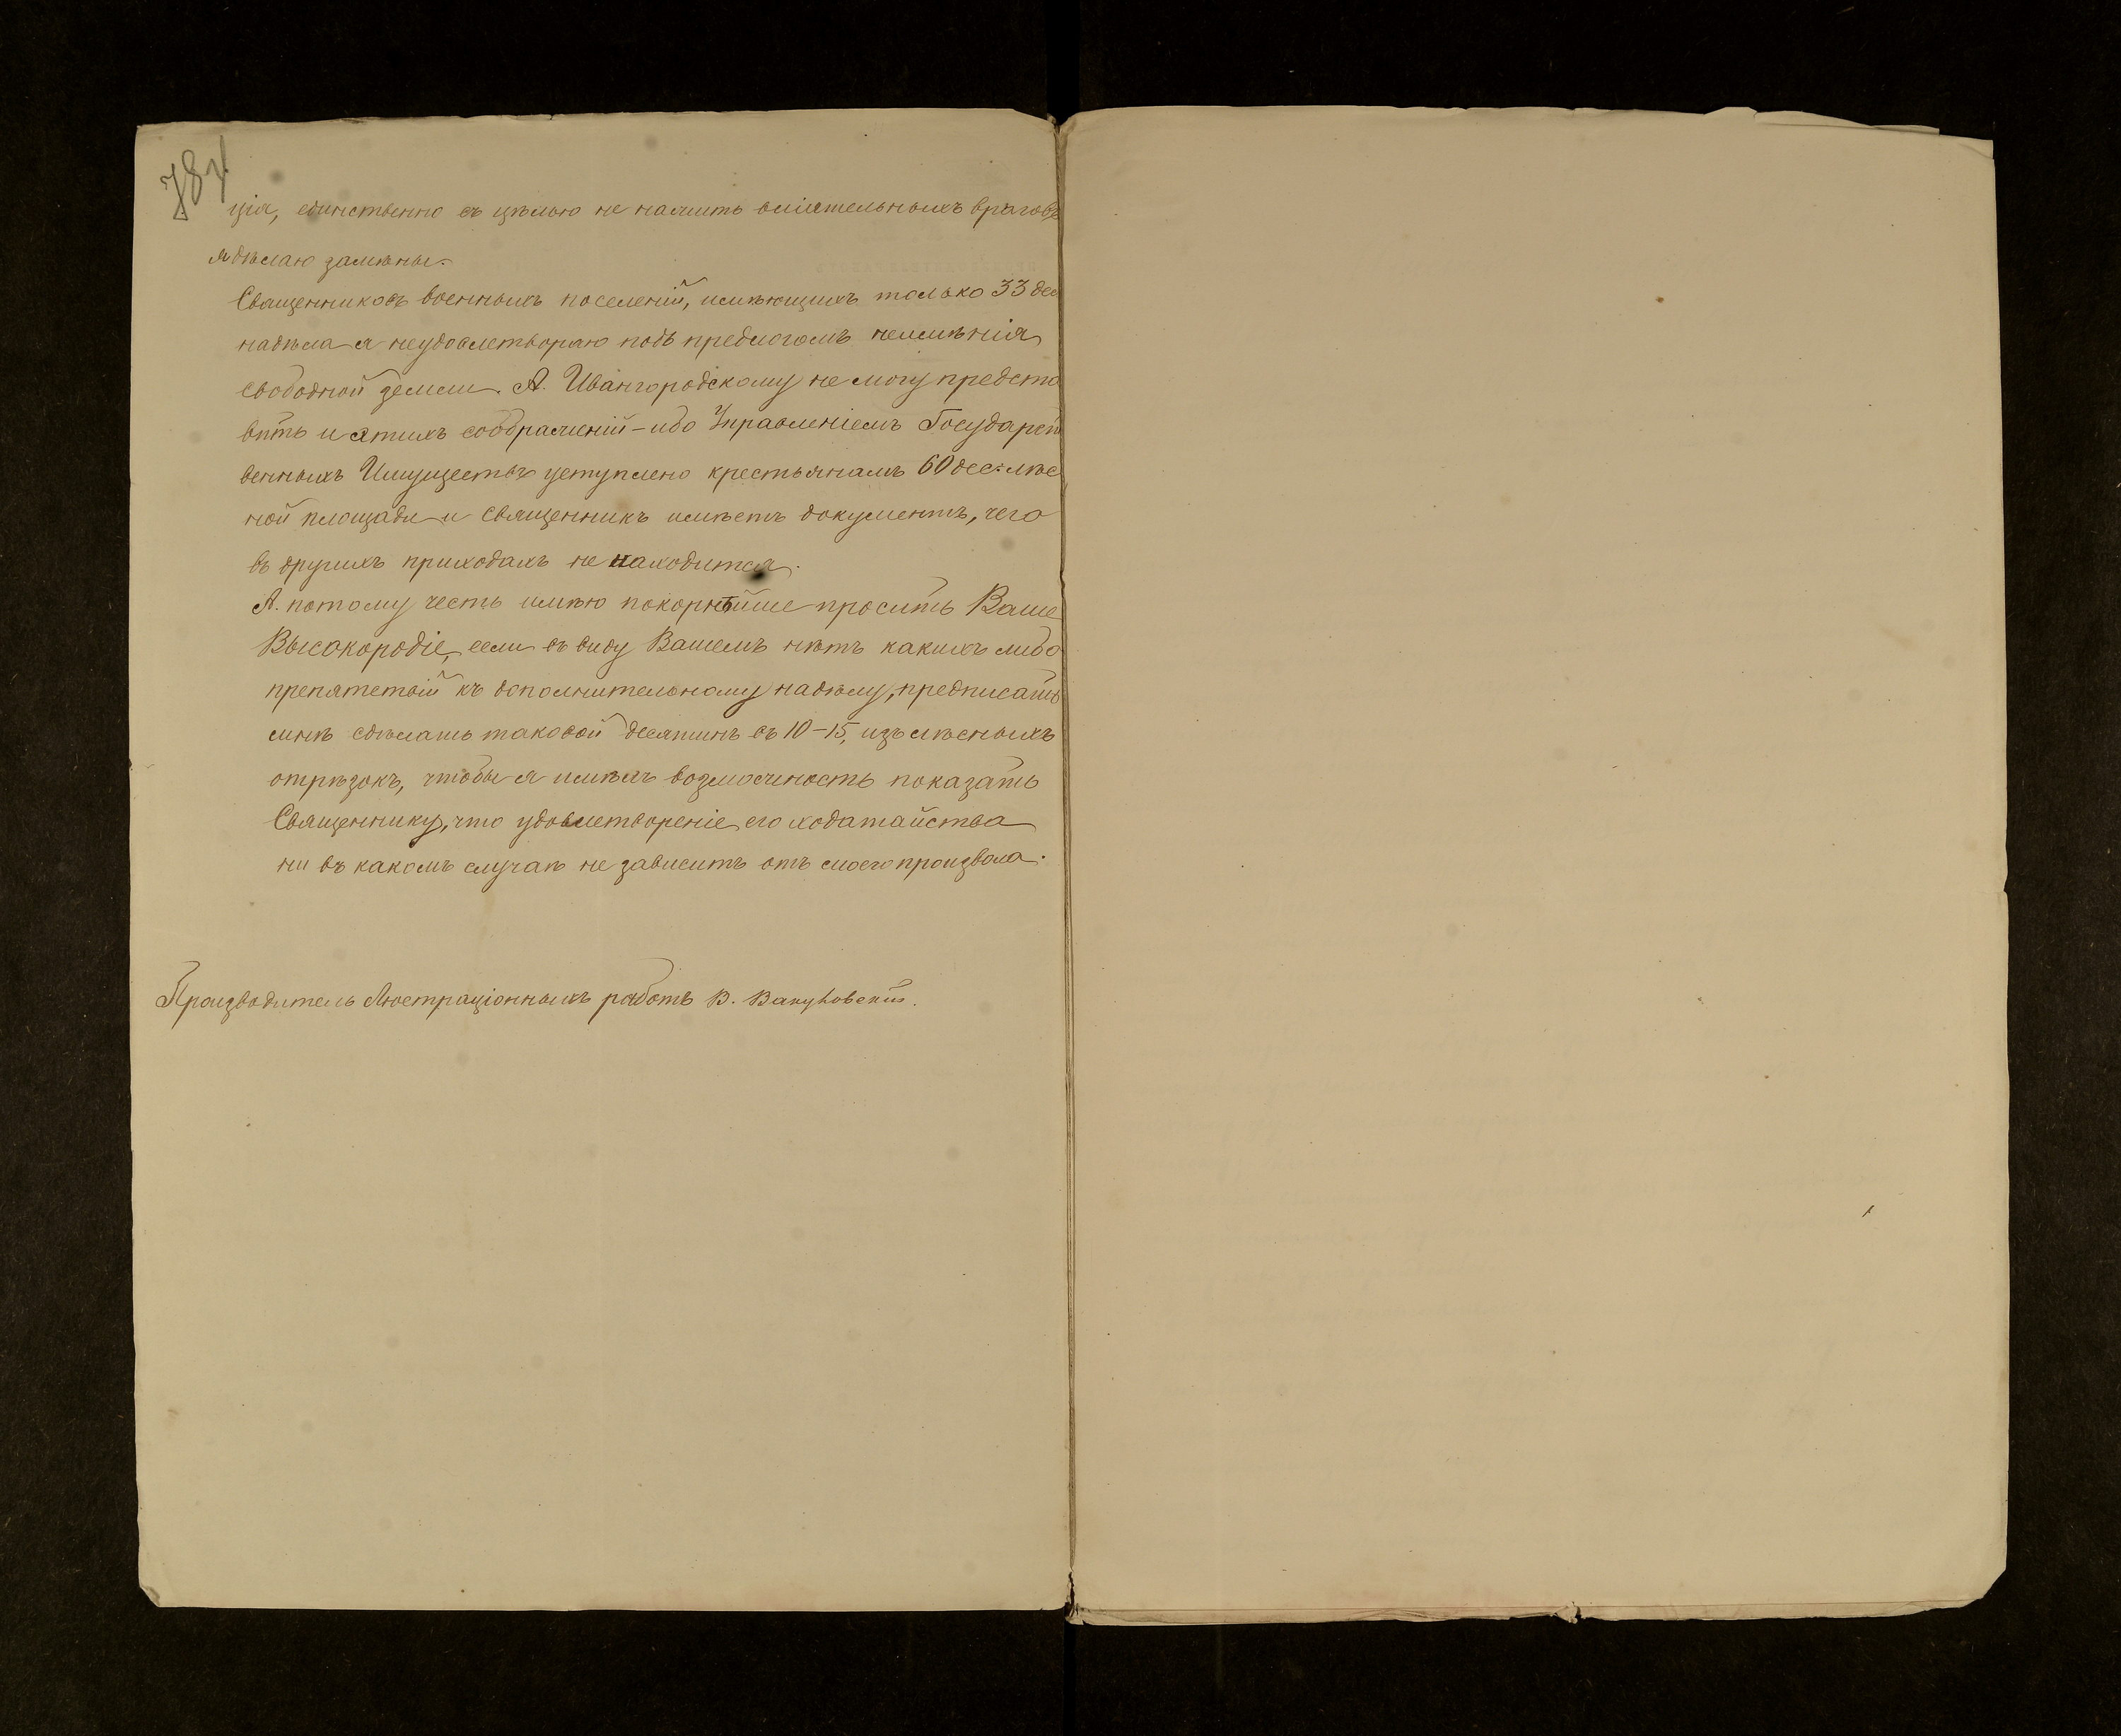 784
ція, единственно съ цѣлью не нажить вліятельныхъ враговъ
я дѣлаю замѣны.
Священниковъ военныхъ поселеній, имѣющихъ только 33 дес
надѣла я неудовлетворяю подъ предлогомъ неимѣнія
свободной земли. А. Ивангородскому не могу предста
вить и этихъ соображеній - ибо Управленіемъ Государст
венныхъ Имуществъ уступлено крестьянамъ 60 дес. лѣс
ной площади и священникъ имѣетъ документъ, чего
въ другихъ приходахъ не находится.
А. потому честь имѣю покорнѣйше просить Ваше
Высокородіе, если въ виду Вашемъ нѣтъ какихъ либо
препятствій къ дополнительному надѣлу, предписать
мнѣ сдѣлать таковой десятинъ въ 10-15, изъ лѣсныхъ
отрѣзокъ, чтобы я имѣлъ возможность показать
Священнику, что удовлетвореніе его ходатайства
ни въ какомъ случаѣ не зависитъ отъ моего произвола.
Производитель Люстраціонныхъ работъ В.